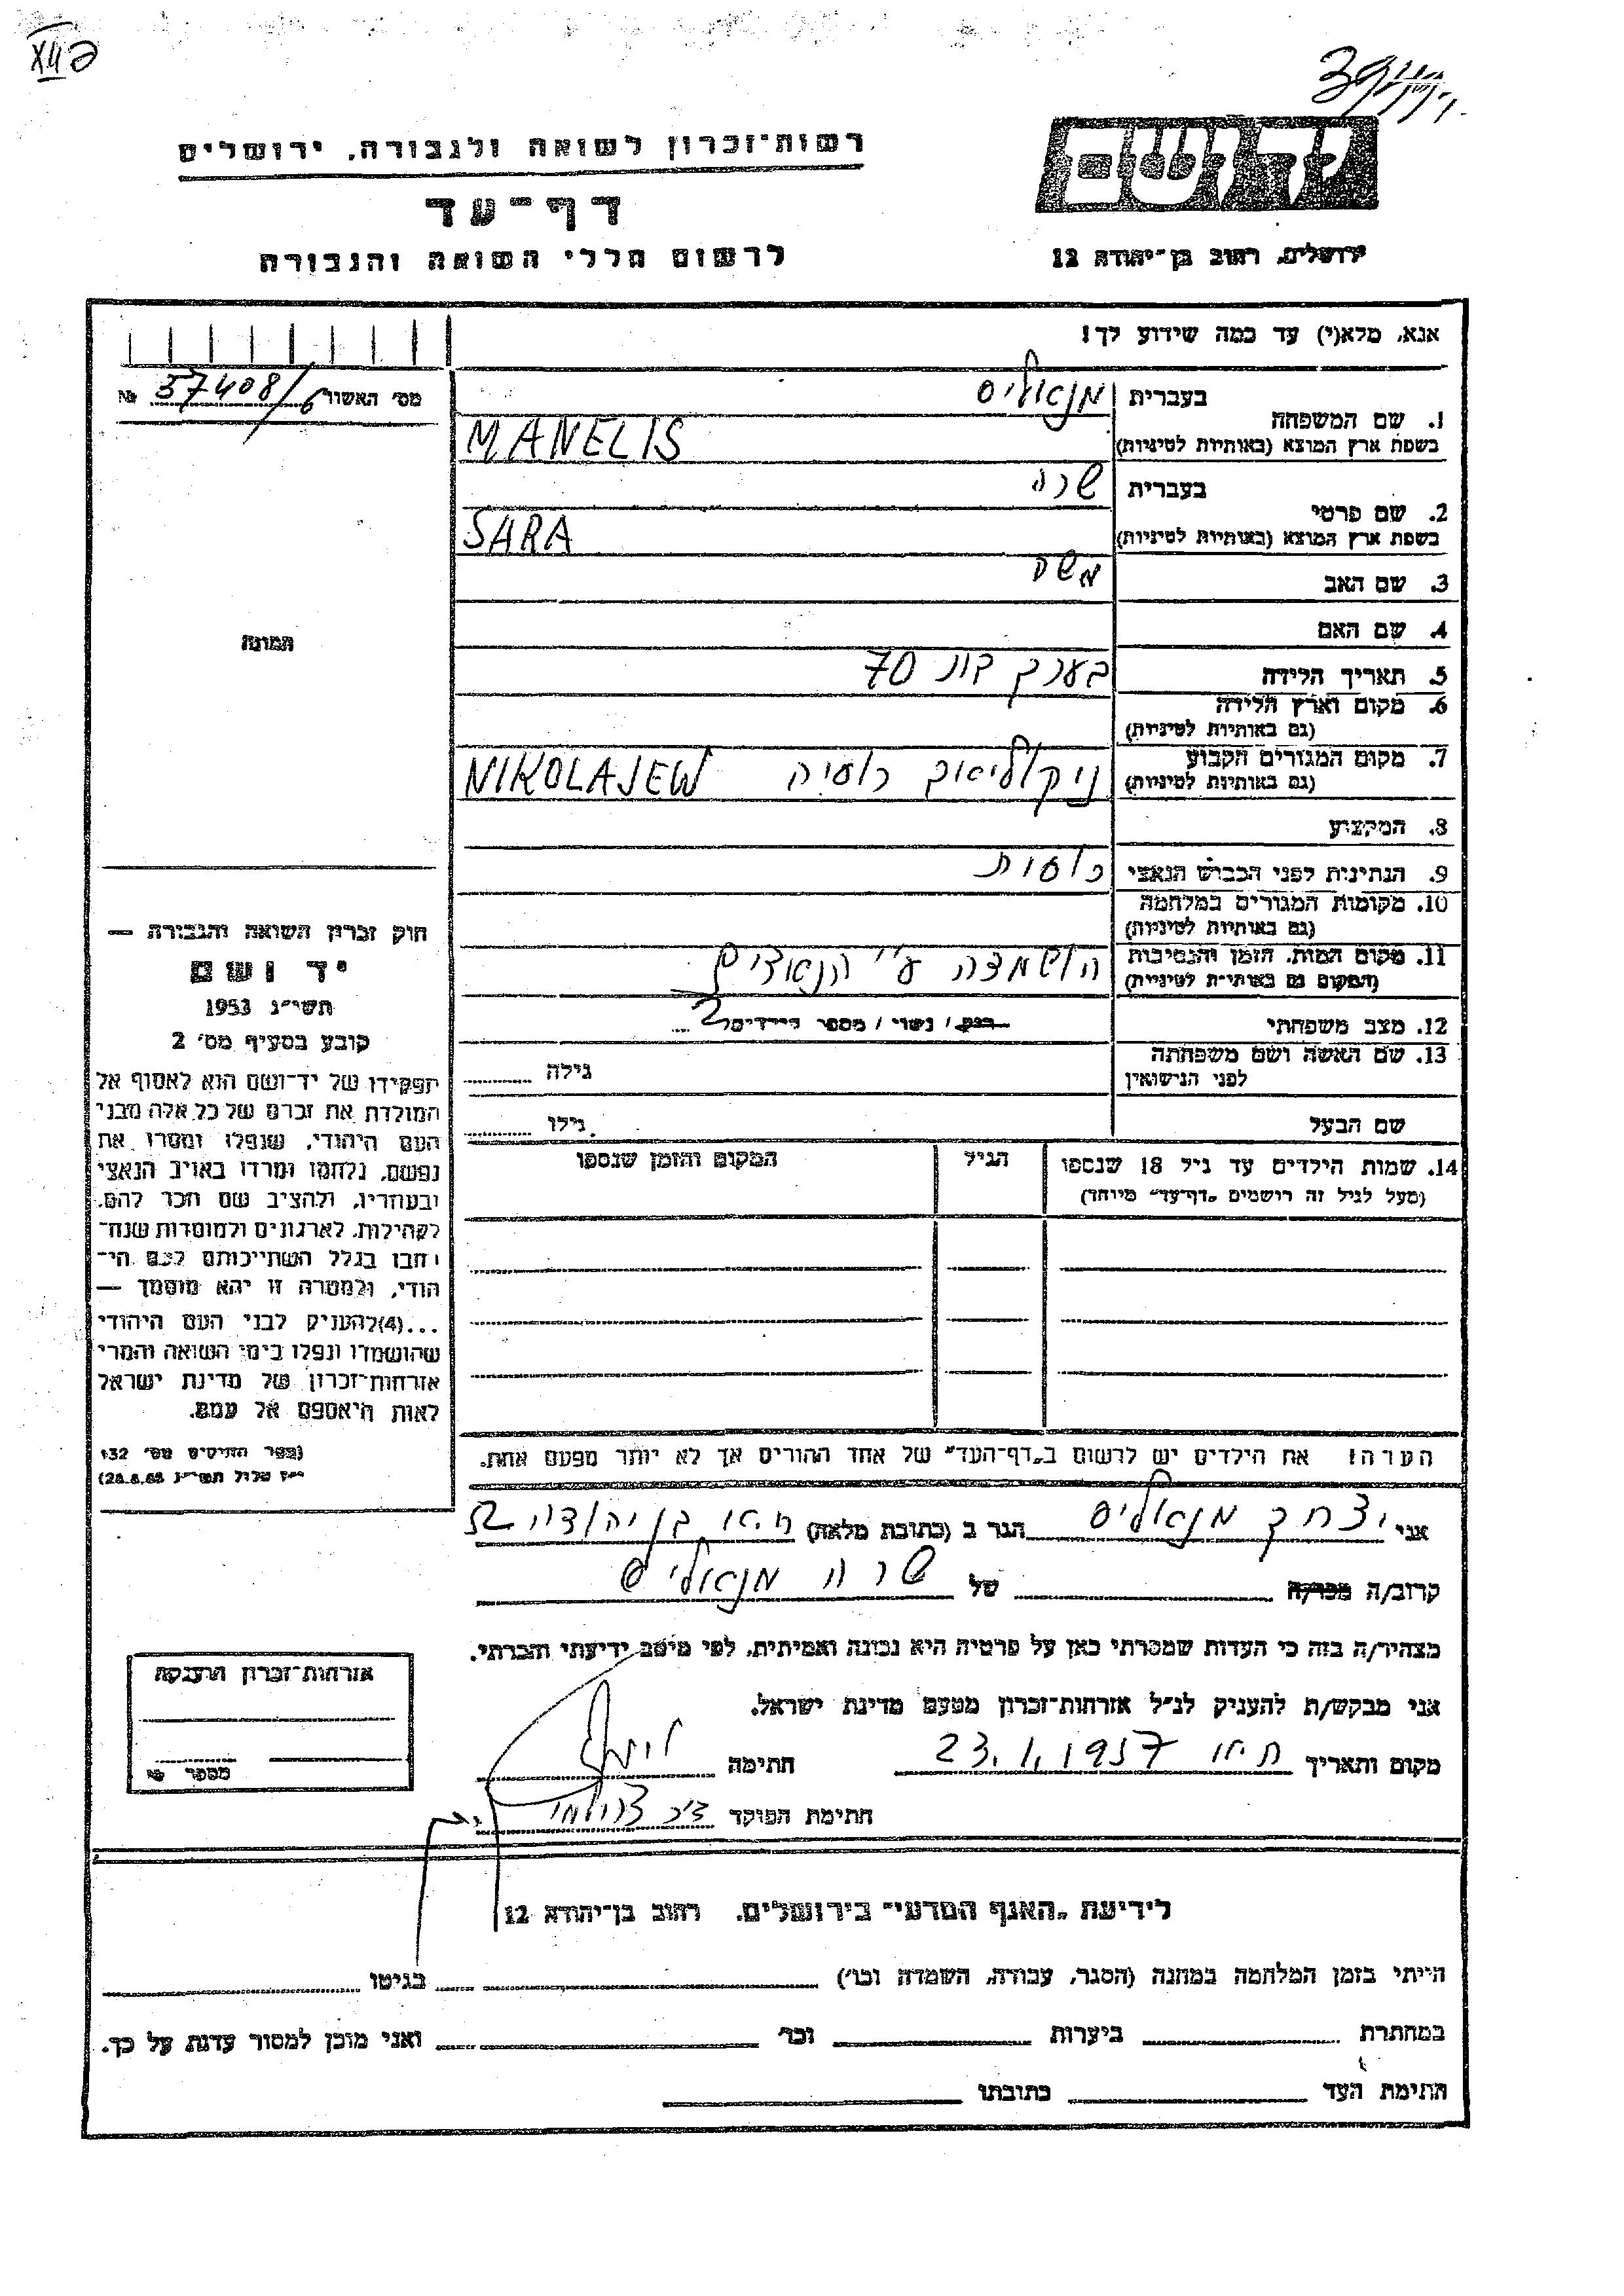 רשות־זכרון לשואה ולגבורה, ירושלים
דף־עד
לרשום חללי השואה והגבורה
ירושלים, רחוב בן־יהודה 12
אנא, מלא(י) עד כמה שידוע לך!
מס׳ האשור 37408/6 №
1. שם המשפחה
בעברית מנאליס
בשפת ארץ המוצא (באותיות לטיניות) MANELIS
2. שם פרטי
בעברית שרה
בשפת ארץ המוצא (באותיות לטיניות) SARA
3. שם האב משה
4. שם האם
5. תאריך הלידה בערך בת 70
6. מקום וארץ הלידה
(גם באותיות לטיניות)
7. מקום המגורים הקבוע ניקוליאוב רוסיה NIKOLAJEW
(גם באותיות לטיניות)
8. המקצוע
9. הנתינות לפני הכבוש הנאצי רוסית
10. מקומות המגורים במלחמה
(גם באותיות לטיניות)
11. מקום המות, הזמן והנסיבות הושמדה ע״י הנאצים
(המקום גם באותיות לטיניות)
12. מצב משפחתי רווק / נשוי / מספר הילדים 2
13. שם האשה ושם משפחתה
לפני הנישואין
גילה
שם הבעל גילו
14. שמות הילדים עד גיל 18 שנספו הגיל המקום והזמן שנספו
(מעל לגיל זה רושמים „דף־עד״ מיוחד)
הערה! את הילדים יש לרשום ב„דף־העד״ של אחד ההורים אך לא יותר מפעם אחת.
תמונה
חוק זכרון השואה והגבורה —
יד ושם
תשי״ג 1953
קובע בסעיף מס׳ 2
תפקידו של יד־ושם הוא לאסוף אל
המולדת את זכרם של כל אלה מבני
העם היהודי, שנפלו ומסרו את
נפשם, נלחמו ומרדו באויב הנאצי
ובעוזריו, ולהציב שם וזכר להם,
לקהילות, לארגונים ולמוסדות שנח־
רבו בגלל השתייכותם לעם הי־
הודי, ולמטרה זו יהא מוסמך —
...(4) להעניק לבני העם היהודי
שהושמדו ונפלו בימי השואה והמרי
אזרחות־זכרון של מדינת ישראל
לאות היאספם אל עמם.
(ספר החוקים מס׳ 132
י״ז אלול תשי״ג 28.8.53)
אני יצחק מנאליס הגר ב (כתובת מלאה) ת.א. בן יהודה 52
קרוב/ה מכר/ה של שרה מנאליס
מצהיר/ה בזה כי העדות שמסרתי כאן על פרטיה היא נכונה ואמיתית, לפי מיטב ידיעתי והכרתי.
אני מבקש/ת להעניק לנ״ל אזרחות־זכרון מטעם מדינת ישראל.
מקום ותאריך ת.א. 23.1.1957 חתימה
חתימת הפוקד
אזרחות־זכרון הוענקה
מספר №
לידיעת „האגף המדעי״ בירושלים, רחוב בן־יהודה 12
הייתי בזמן המלחמה במחנה (הסגר, עבודה, השמדה וכו׳) בגיטו
במחתרת ביערות וכו׳ ואני מוכן למסור עדות על כך.
חתימת העד כתובתו